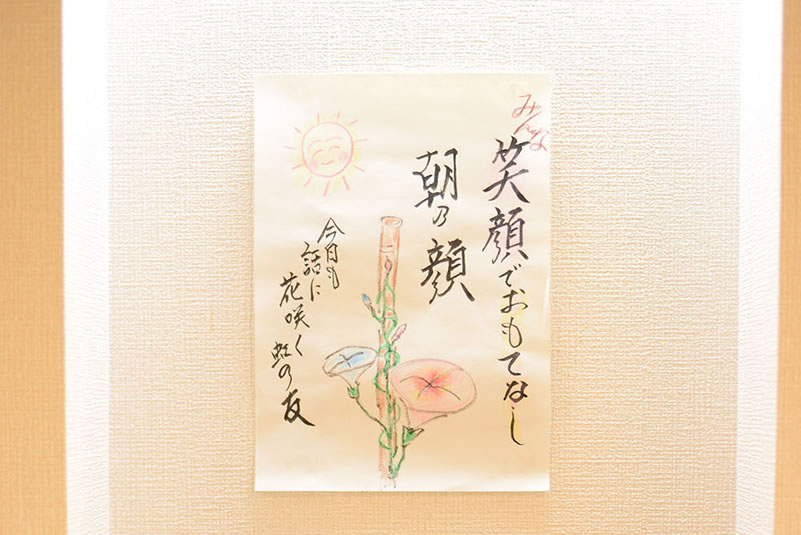 みんな
笑顔でおもてなし
朝乃顔
今日も
話に
花咲く
虹の友